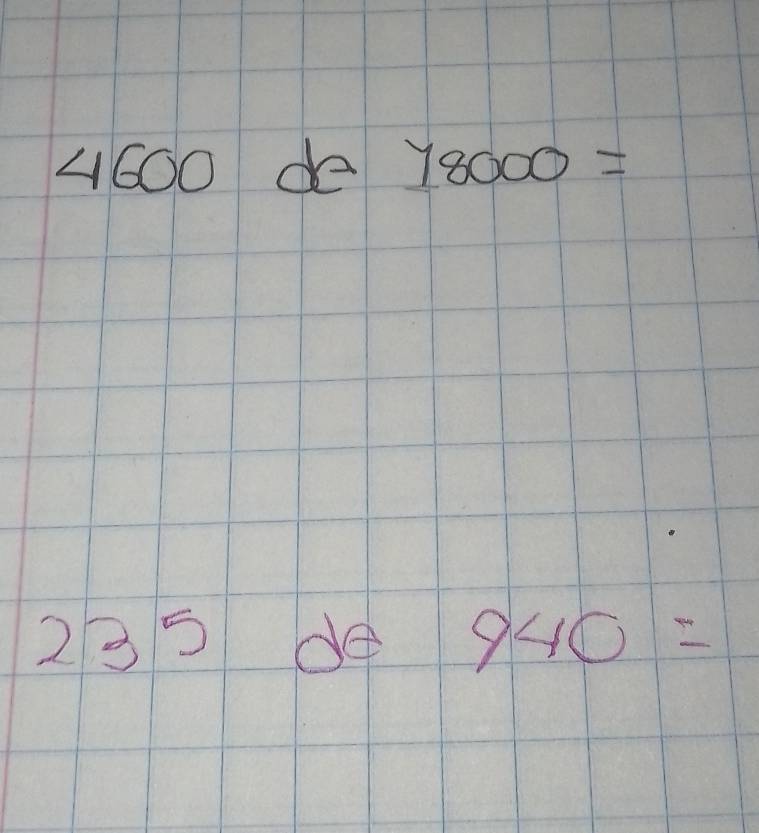 4600 de 18000 =
235 de 940 =